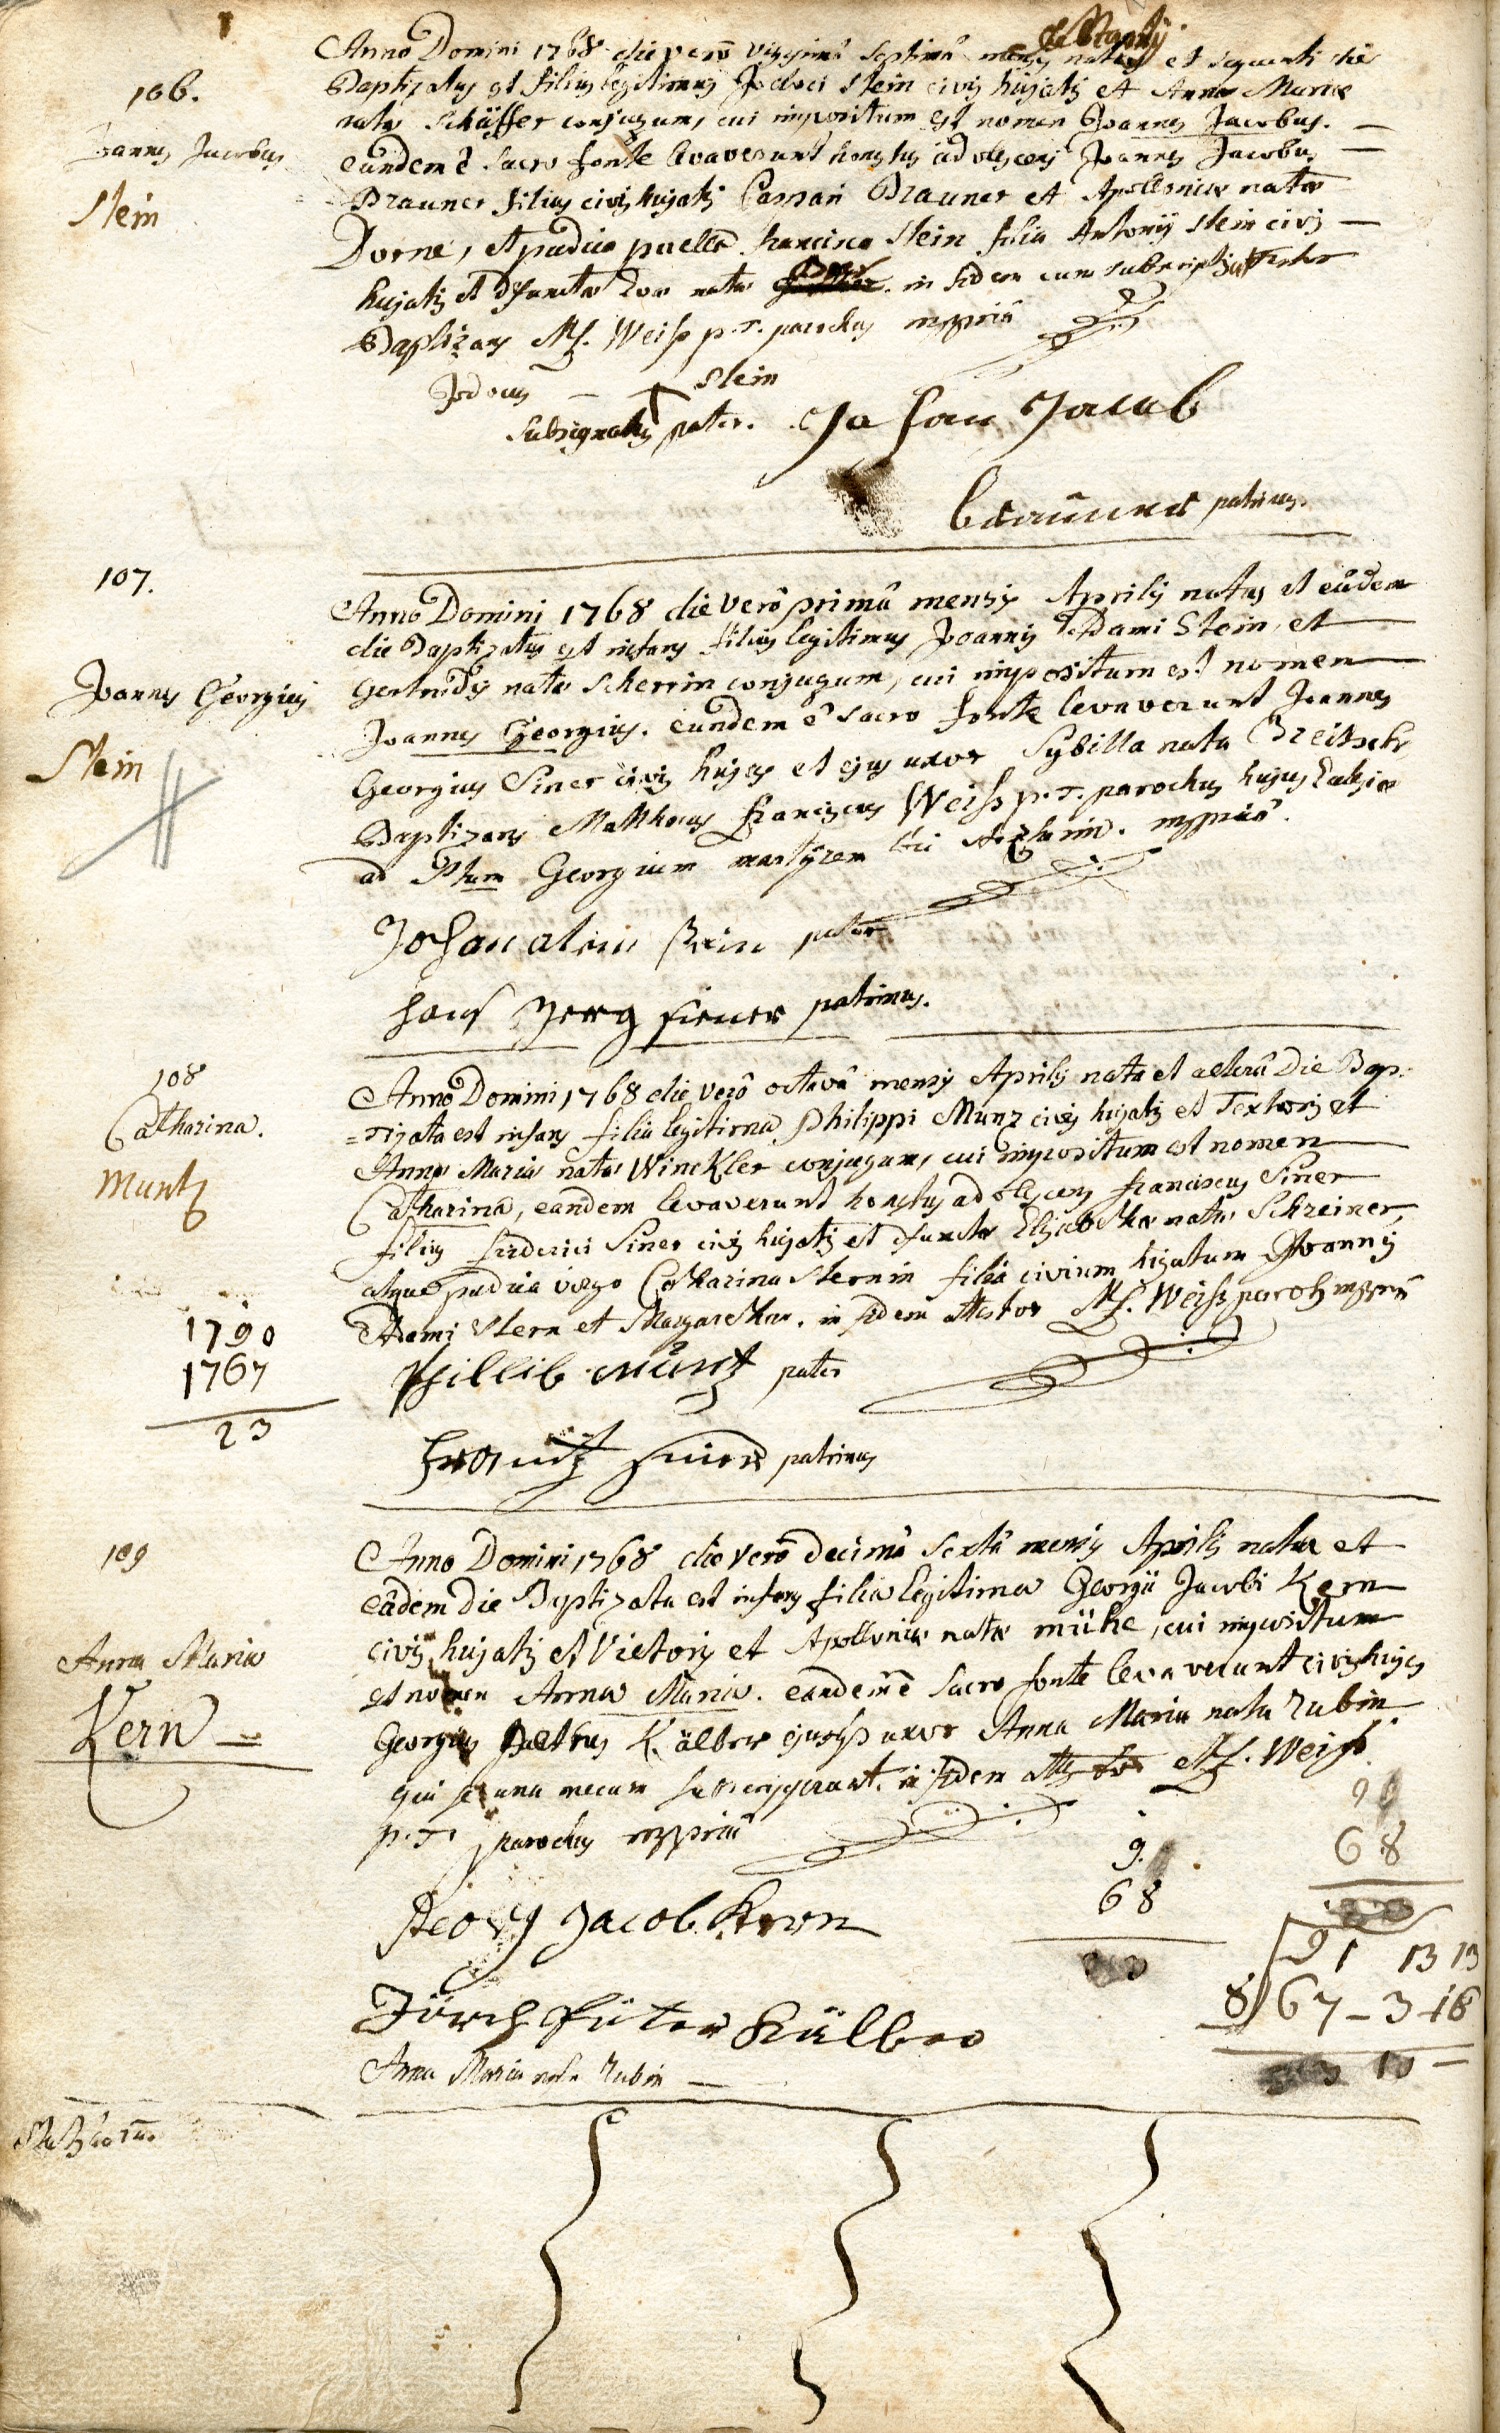 106.
Joannes Jacobus
Stein
Martij
Anno Domini 1768 die vero vigesimâ septimâ mensis natus et sequenti die
Baptizatus est filius legitimus Jodoci Stein civis hujatis et Annæ Mariæ
natæ Schäffer conjugum, cui impositum est nomen Joannes Jacobus. —
eundem è sacro fonte levaverunt honestus adolescens Joannes Jacobus —
Brauner filius civis hujatis Caspari Brauner et Apolloniæ natæ
Dorne, et pudica puella Francisca Stein filia Antonij Stein civis —
hujatis et defunctæ Evæ natæ in fidem cum subscriptis attestor
Baptizans M.F. Weiss p.T. parochus mppriâ
Jodocus — + Stein
subsignatus pater. Johan Jacob
Brauner patrinus.
107.
Joannes Georgius
Stein
Anno Domini 1768 die verò primâ mensis Aprilis natus et eâdem
die Baptizatus est infans filius legitimus Joannis Adami Stein, et
Gertrudis natæ Scherrin conjugum, cui impositum est nomen —
Joannes Georgius. eundem è sacro fonte levaverunt Joannes
Georgius Siner civis hujas et ejus uxor Sybilla nata
Baptizans Matthæus Franciscus Weiss p.T. parochus hujus Ecclesiæ
ad Stum Georgium martyrem mppriâ.
Johan adam Stein pater
Hans Jerg Siener patrinus.
108
Catharina.
Muntz
Anno Domini 1768 die verò octavâ mensis Aprilis nata et alterâ Die Bap-
=tizata est infans filia legitima Philippi Munz civis hujatis et Textoris et
Annæ Mariæ natæ Winckler conjugum, cui impositum est nomen —
Catharina, eandem levaverunt honestus adolescens Franciscus Siner
filius Friderici Siner civis hujatis et defunctæ Elisabethæ natæ Schreiner,
atque pudica virgo Catharina Sternin filia civium hujatum Joannis
Adami Stern et Margarethæ. in fidem attestor M.F. Weiss paroch mppriâ
1790
1767
23
Phillib Müntz pater
Frantz Siner patrinus
109
Anna Maria
Kern =
Anno Domini 1768 die verò decimâ sextâ mensis Aprilis nata et
eâdem Die Baptizata est infans filia legitima Georgii Jacobi Kern
civis hujatis et Victoris et Apolloniæ natæ mühe, cui impositum
est nomen Anna Maria. eandem è sacro fonte levaverunt civis hujas
Georgius Petrus Kälber ejusque uxor Anna Maria nata Rubin
qui se una mecum subscripserunt. in fidem attestor M.F. Weiss
p.T. parochus mppriâ
9.
68
68
Georg Jacob Kern
91 13 13
8) 67 – 3 18
10 —
Jörch Püter Kälber
Anna Maria nata Rubin —